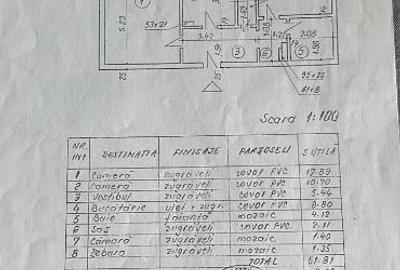 1
5.23
53x21
3.42
3
6
5
2.08
1.98
25
95x25
61x8
Scara 1:100
NR. DESTINATIA FINISAJE PARDOSELI S UTILĂ
1 Camera zugraveli covor PVC 17.89
2 Camera zugraveli covor PVC 10.70
3 Vestibul zugraveli covor PVC 5.44
4 Bucătărie ulei + zugr. covor PVC 8.80
5 Baie faianță mozaic 4.12
6 Sas zugraveli covor PVC 2.11
7 Cămară zugraveli mozaic 1.40
8 Debara zugraveli mozaic 1.35
TOTAL 51.81